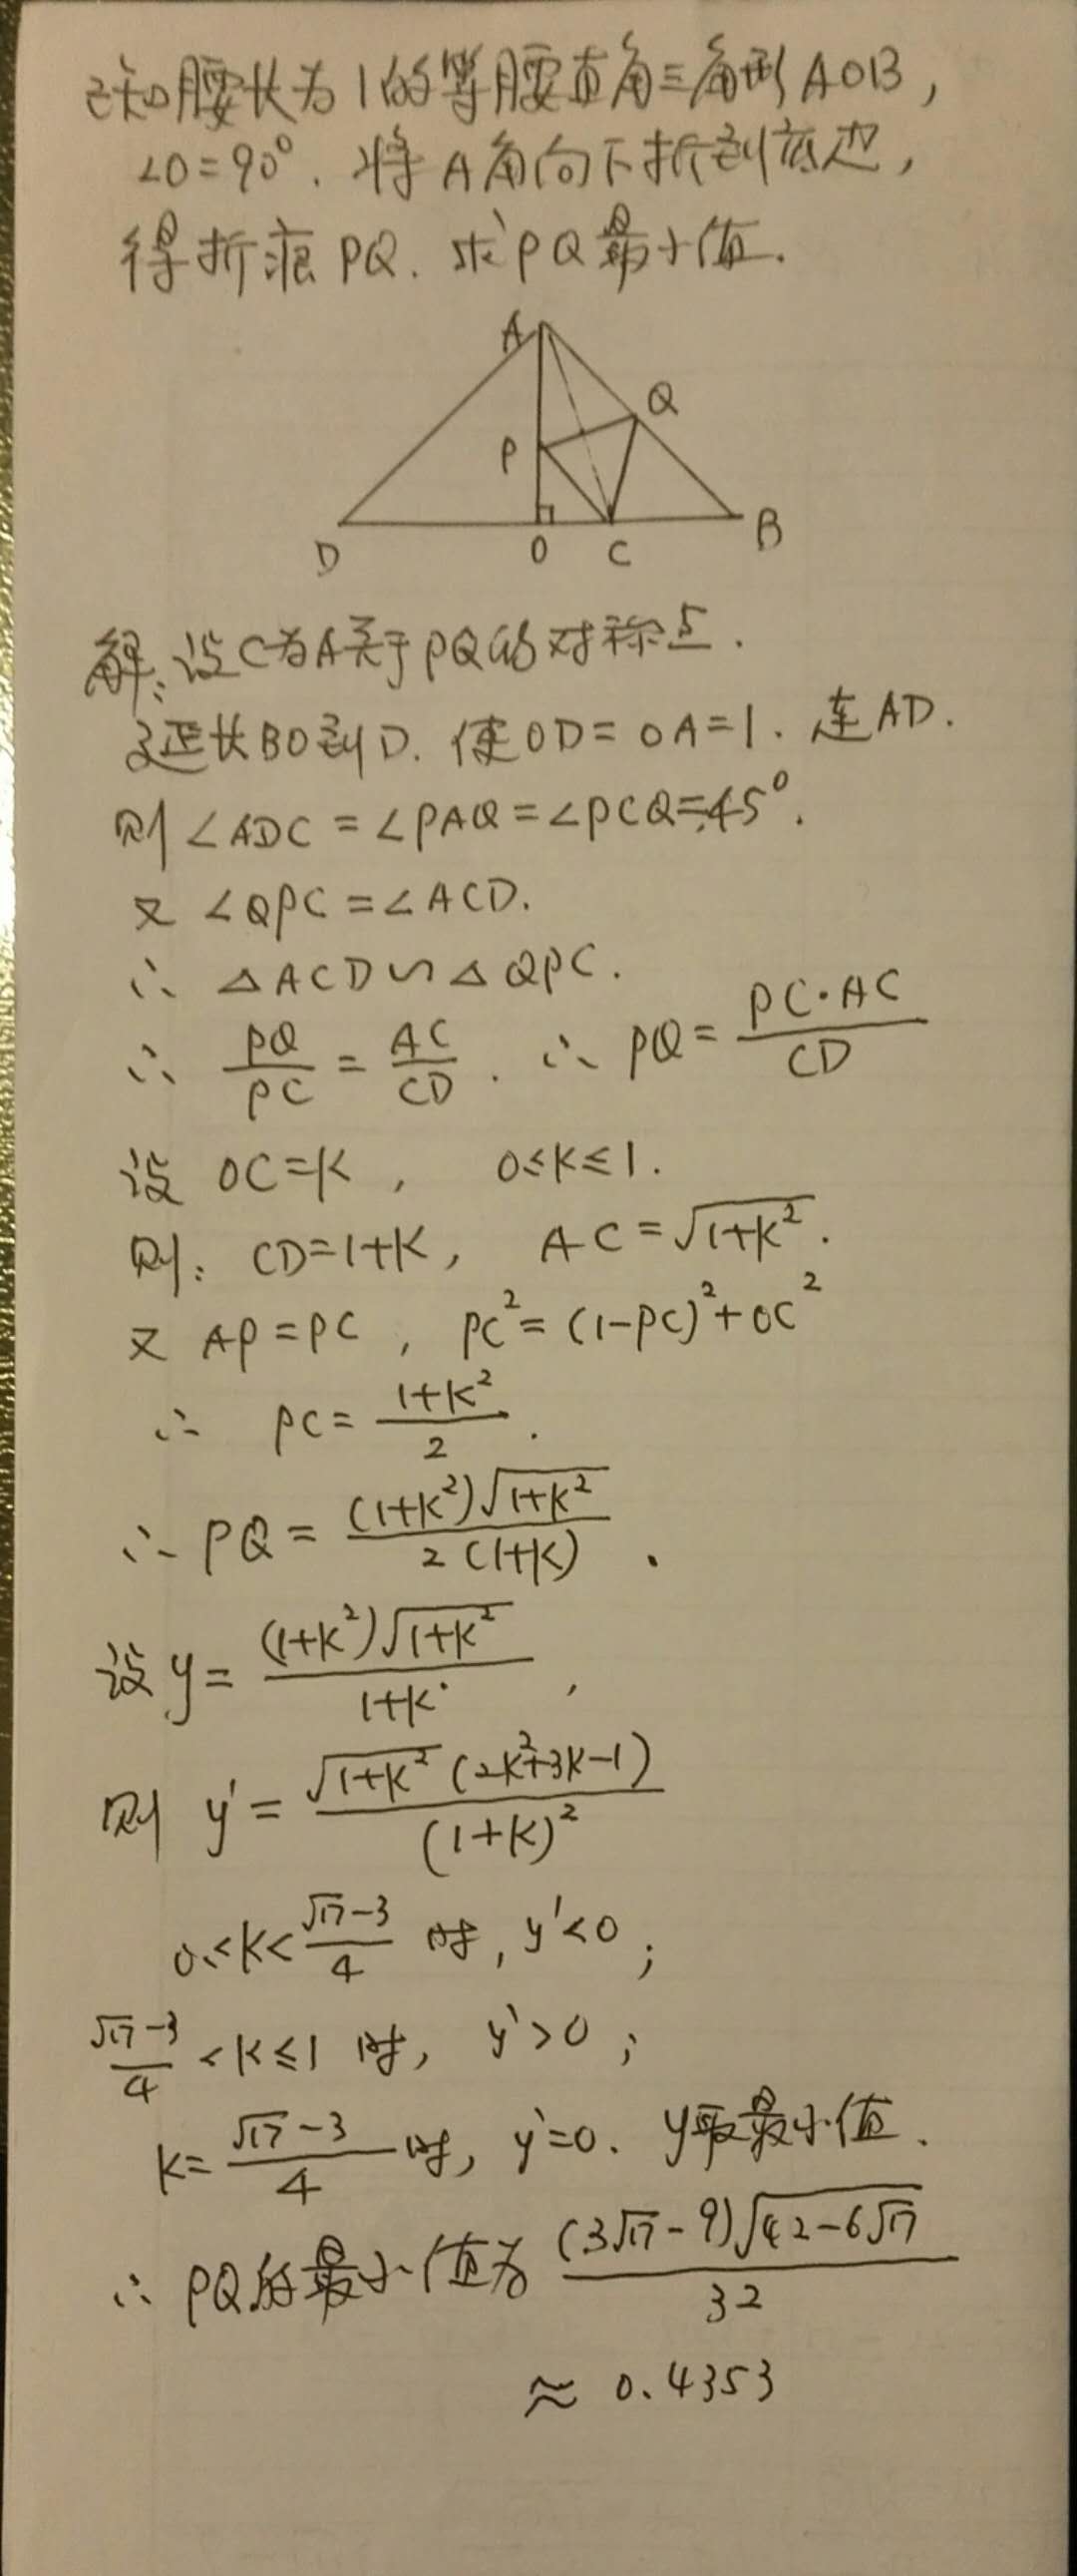 已知腰长为1的等腰直角三角形AOB,
∠O=90°. 将A角向下折到底边,
得折痕PQ. 求PQ最小值.
A
Q
P
D
O
C
B
解: 设C为A关于PQ的对称点.
延长BO到D. 使OD=OA=1. 连AD.
则∠ADC=∠PAQ=∠PCQ=45°.
又 ∠QPC=∠ACD.
∴ △ACD∽△QPC.
∴ PQ/PC = AC/CD . ∴ PQ = PC·AC/CD
设 OC=K , 0≤K≤1.
则: CD=1+K, AC=√(1+K²).
又 AP=PC , PC²=(1-PC)²+OC²
∴ PC = (1+K²)/2 .
∴ PQ = (1+K²)√(1+K²)/2(1+K) .
设 y = (1+K²)√(1+K²)/(1+K) ,
则 y' = √(1+K²)(2K²+3K-1)/(1+K)²
0≤K<(√17-3)/4 时, y'<0 ;
(√17-3)/4 <K≤1 时, y'>0 ;
K=(√17-3)/4 时, y'=0. y取最小值.
∴ PQ的最小值为 (3√17-9)√(42-6√17)/32
≈ 0.4353